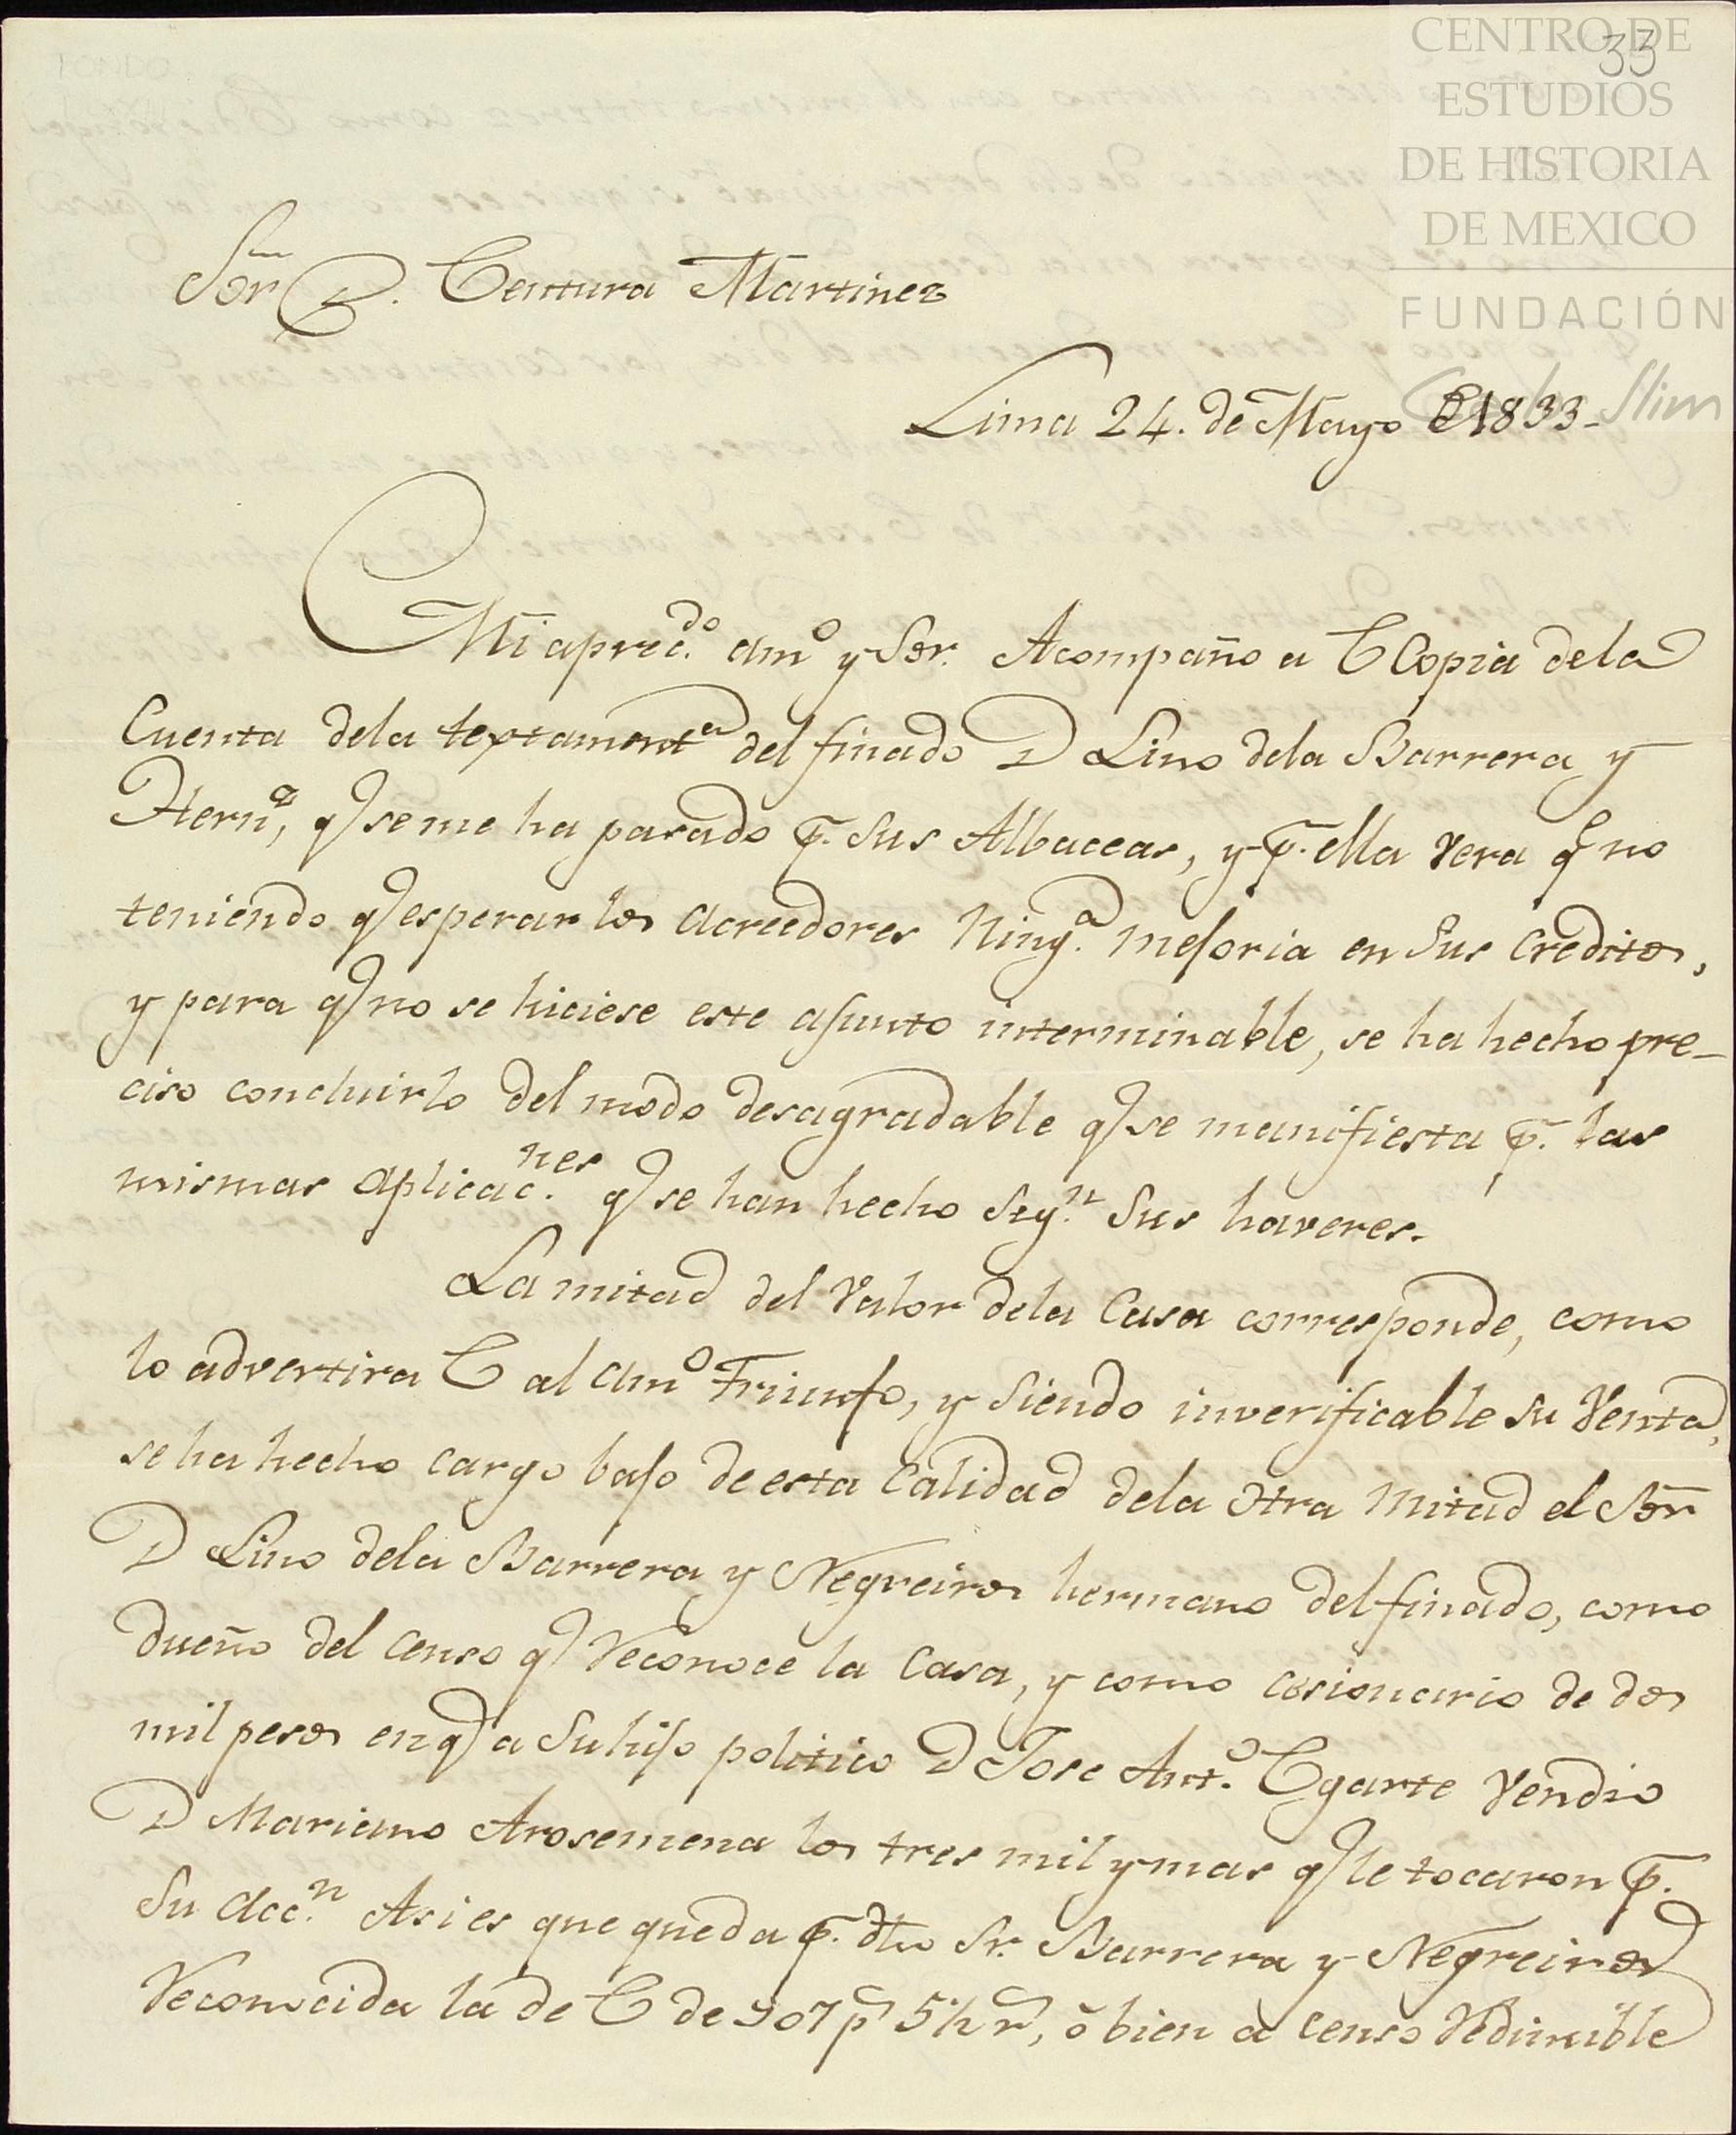 CENTRO DE
ESTUDIOS
DE HISTORIA
DE MEXICO
FUNDACIÓN
Carlos Slim
33
Sõr D. Ventura Martinez
Lima 24. de Mayo de 1833-
Mi aprec.do am.o y Sõr. Acompaño a V Copia dela
Cuenta dela textament.a del finado D Lino dela Barrera y
Hern.a, q.e se me ha pasado p.r sus Albaceas, y p.r ella vera q.e no
teniendo q.e esperar los Acreedores Ning.a mejoria en Sus Creditos,
y para q.e no se hiciese este asunto interminable, se ha hecho pre-
ciso concluirlo del modo desagradable q.e se manifiesta p.r las
mismas aplicac.nes q.e se han hecho Seg.n Sus haveres.
La mitad del Valor dela Casa corresponde, como
lo advertira V al am.o Triunfo, y siendo inverificable su Venta,
se ha hecho cargo bajo de esta Calidad dela otra Mitad el Sõr
D Lino dela Barrera y Negreiros hermano del finado, como
dueño del Censo q.e reconoce la Casa, y como cesionario de dos
mil pesos en q.e a Su hijo politico D Jose Ant.o Ugarte Vendio
D Mariano Arosemena los tres mil y mas q.e le tocaron p.r
Su Acc.n Asi es que queda p.r dho Sr. Barrera y Negreiros
reconocida la de V de 907 p.s 5½ r.s, ó bien a Censo redimible